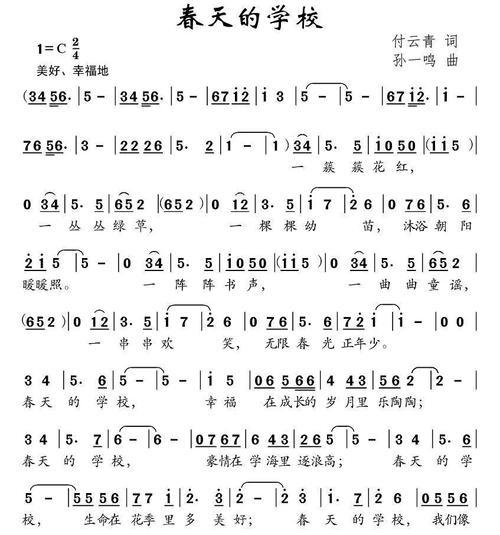 春天的学校
1=C 2/4
付云青 词
美好、幸福地
孙一鸣 曲
(34 56·|5 -|52 56·|5 -|67 12|1 3|5 -|5 -|
76 56·|3 -|22 56·|5· 2|1 -|1 -)|34|5· 5|1050|(115)|
一 簇 簇 花 红,
0 34|5· 5|652|(652)|0 12|3· 5|17|26|0 76|5· 6|
一 丛 丛 绿 草, 一 棵 棵 幼 苗, 沐浴 朝 阳
215|5 -|0 34|5· 5|1050|(115)|0 34|5· 5|652|
暖暖照。 一 阵 阵 书 声, 一 曲 曲 童 谣,
(652)|0 12|3· 5|1 7|2 6|0 76|5· 672|15·|10|
一 串 串 欢 笑, 无限 春 光 正年少。
3 4|5· 6|5 -|5 -|1 5|06 5 66|56 1|32 2|2 -|
春天 的 学校, 幸 福 在 成长的 岁 月里 乐陶陶;
3 4|5· 7|6 -|6 -|0767|03 23|2 176|5 -|3 4|5· 6|
春天 的 学 校, 豪情在 学海里 逐浪高; 春天 的 学
5 -|5556|05 56|7· 2|1 -|3 4|5· 6|5 -|5556|
校, 生命在 花季里 多 美好; 春 天 的 学校, 我们像